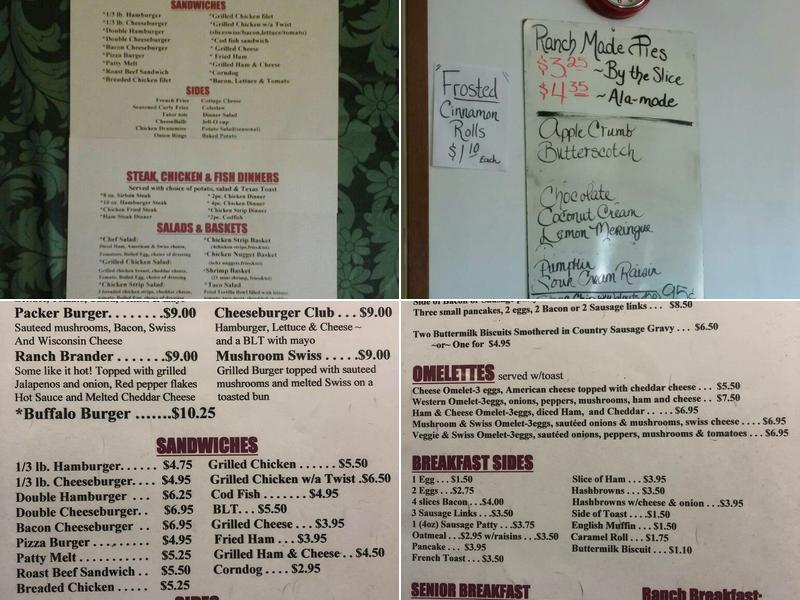 SANDWICHES
*1/3 lb. Hamburger
*1/3 lb. Cheeseburger
*Double Hamburger
*Double Cheeseburger
*Bacon Cheeseburger
*Pizza Burger
*Patty Melt
*Roast Beef Sandwich
*Breaded Chicken filet
*Grilled Chicken filet
*Grilled Chicken w/a Twist
(sliceswiss/bacon,lettuce/tomato)
*Cod fish sandwich
* Grilled Cheese
* Fried Ham
*Grilled Ham & Cheese
*Corndog
*Bacon, Lettuce & Tomato
SIDES
French Fries
Seasoned Curly Fries
Tator tots
CheeseBalls
Chicken Drummies
Onion Rings
Cottage Cheese
Coleslaw
Dinner Salad
Jell-O cup
Potato Salad(seasonal)
Baked Potato
STEAK, CHICKEN & FISH DINNERS
Served with choice of potato, salad & Texas Toast
*8 oz. Sirloin Steak
*10 oz. Hamburger Steak
*Chicken Fried Steak
*Ham Steak Dinner
* 2pc. Chicken Dinner
* 4pc. Chicken Dinner
*Chicken Strip Dinner
*2pc. Codfish
SALADS & BASKETS
*Chef Salad:
Diced Ham, American & Swiss cheese,
Tomatoes, Boiled Egg, choice of dressing
*Grilled Chicken Salad:
Grilled chicken breast, cheddar cheese,
Tomato, Boiled Egg, choice of dressing
*Chicken Strip Salad:
*Chicken Strip Basket
*Chicken Nugget Basket
*Shrimp Basket
*Taco Salad
"Frosted"
Cinnamon
Rolls
$1.10
Each
Ranch Made Pies
$3.25 ~By the Slice
$4.35 ~Ala-mode
Apple Crumb
Butterscotch
Chocolate
Coconut Cream
Lemon Meringue
Pumpkin
Sour Cream Raisin
95¢
Packer Burger.....$9.00
Sauteed mushrooms, Bacon, Swiss
And Wisconsin Cheese
Ranch Brander .......$9.00
Some like it hot! Topped with grilled
Jalapenos and onion, Red pepper flakes
Hot Sauce and Melted Cheddar Cheese
*Buffalo Burger .......$10.25
Cheeseburger Club . . . $9.00
Hamburger, Lettuce & Cheese ~
and a BLT with mayo
Mushroom Swiss .....$9.00
Grilled Burger topped with sauteed
mushrooms and melted Swiss on a
toasted bun
SANDWICHES
1/3 lb. Hamburger. . . . . . $4.75
1/3 lb. Cheeseburger. . . . $4.95
Double Hamburger . . . $6.25
Double Cheeseburger. . $6.95
Bacon Cheeseburger . . $6.95
Pizza Burger . . . . . . . . . $4.95
Patty Melt . . . . . . . . $5.25
Roast Beef Sandwich . . $5.50
Breaded Chicken . . . . . $5.25
Grilled Chicken . . . . . . $5.50
Grilled Chicken w/a Twist .$6.50
Cod Fish . . . . . . . $4.95
BLT. . . $5.50
Grilled Cheese . . . $3.95
Fried Ham . . . $3.95
Grilled Ham & Cheese . . $4.50
Corndog . . . . $2.95
SIDES
Three small pancakes, 2 eggs, 2 Bacon or 2 Sausage links . . . $8.50
Two Buttermilk Biscuits Smothered in Country Sausage Gravy . . . $6.50
~or~ One for $4.95
OMELETTES served w/toast
Cheese Omelet-3 eggs, American cheese topped with cheddar cheese . . . $5.50
Western Omelet-3eggs, onions, peppers, mushrooms, ham and cheese . . $7.50
Ham & Cheese Omelet-3eggs, diced Ham, and Cheddar . . . $6.95
Mushroom & Swiss Omelet-3eggs, sautéed onions & mushrooms, swiss cheese . . . . $6.95
Veggie & Swiss Omelet-3eggs, sautéed onions, peppers, mushrooms & tomatoes . . . $6.95
BREAKFAST SIDES
1 Egg . . . $1.50
2 Eggs . . .$2.75
4 slices Bacon . . .$4.00
3 Sausage Links . . .$3.50
1 (4oz) Sausage Patty . . .$3.75
Oatmeal . . .$2.95 w/raisins . . .$3.50
Pancake . . . $3.95
French Toast . . . $3.50
Slice of Ham . . . $3.95
Hashbrowns . . . $3.50
Hashbrowns w/cheese & onion . . .$3.95
Side of Toast . . .$1.50
English Muffin . . . $1.50
Caramel Roll . . . $1.75
Buttermilk Biscuit . . . $1.10
SENIOR BREAKFAST
Ranch Breakfast: